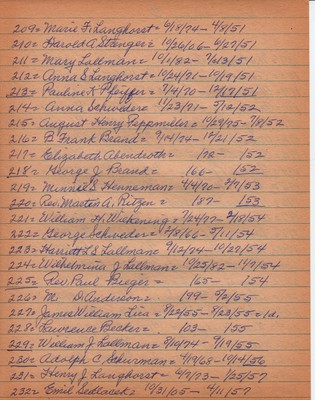 209= Marie F. Langhorst= 6/18/74- 4/8/51
210= Harold A Strenger= 10/26/06- 6/27/51
211= Mary Lallman= 10/1/82- 7/23/51
212= Anna S. Langhorst= 10/24/71- 10/19/51
213= Pauline K Pfeiffer= 7/4/70- 12/17/51
214= Anna Schweder= 11/23/71- 5/12/52
215= August Henry Teppmiller= 10/29/75- 7/8/52
216= B Frank Brand= 9/14/74- 12/21/52
217= Elizabeth Abendroth= 172- 152
218= George J. Brand= 166- 152
219= Minnie S Henneman= 4/4/70- 7/9/53
220= Rev. Martin A. Ritzen= 187- 153
221= William H. Wiekening= 7/24/77- 2/18/54
222= George Schweder= 4/8/66- 5/11/54
223= Harriett L S Lallman= 9/12/74- 10/28/54
224= Wilhelmina J Lallman= 10/25/82- 11/9/54
225= Rev. Paul Bieger= 165- 154
226= M. D Anderson= 199- 9/2/55
227= James William Lira= 9/22/55- 9/23/55= 1d.
228= Lawrence Becker= 103- 155
229= William J. Lallman= 8/10/74- 7/19/55
230= Adolph C. Schurman= 7/19/68- 10/14/56
231= Henry J. Langhorst= 6/7/73- 1/25/57
232= Emil Sedlacek= 10/31/05- 4/11/57